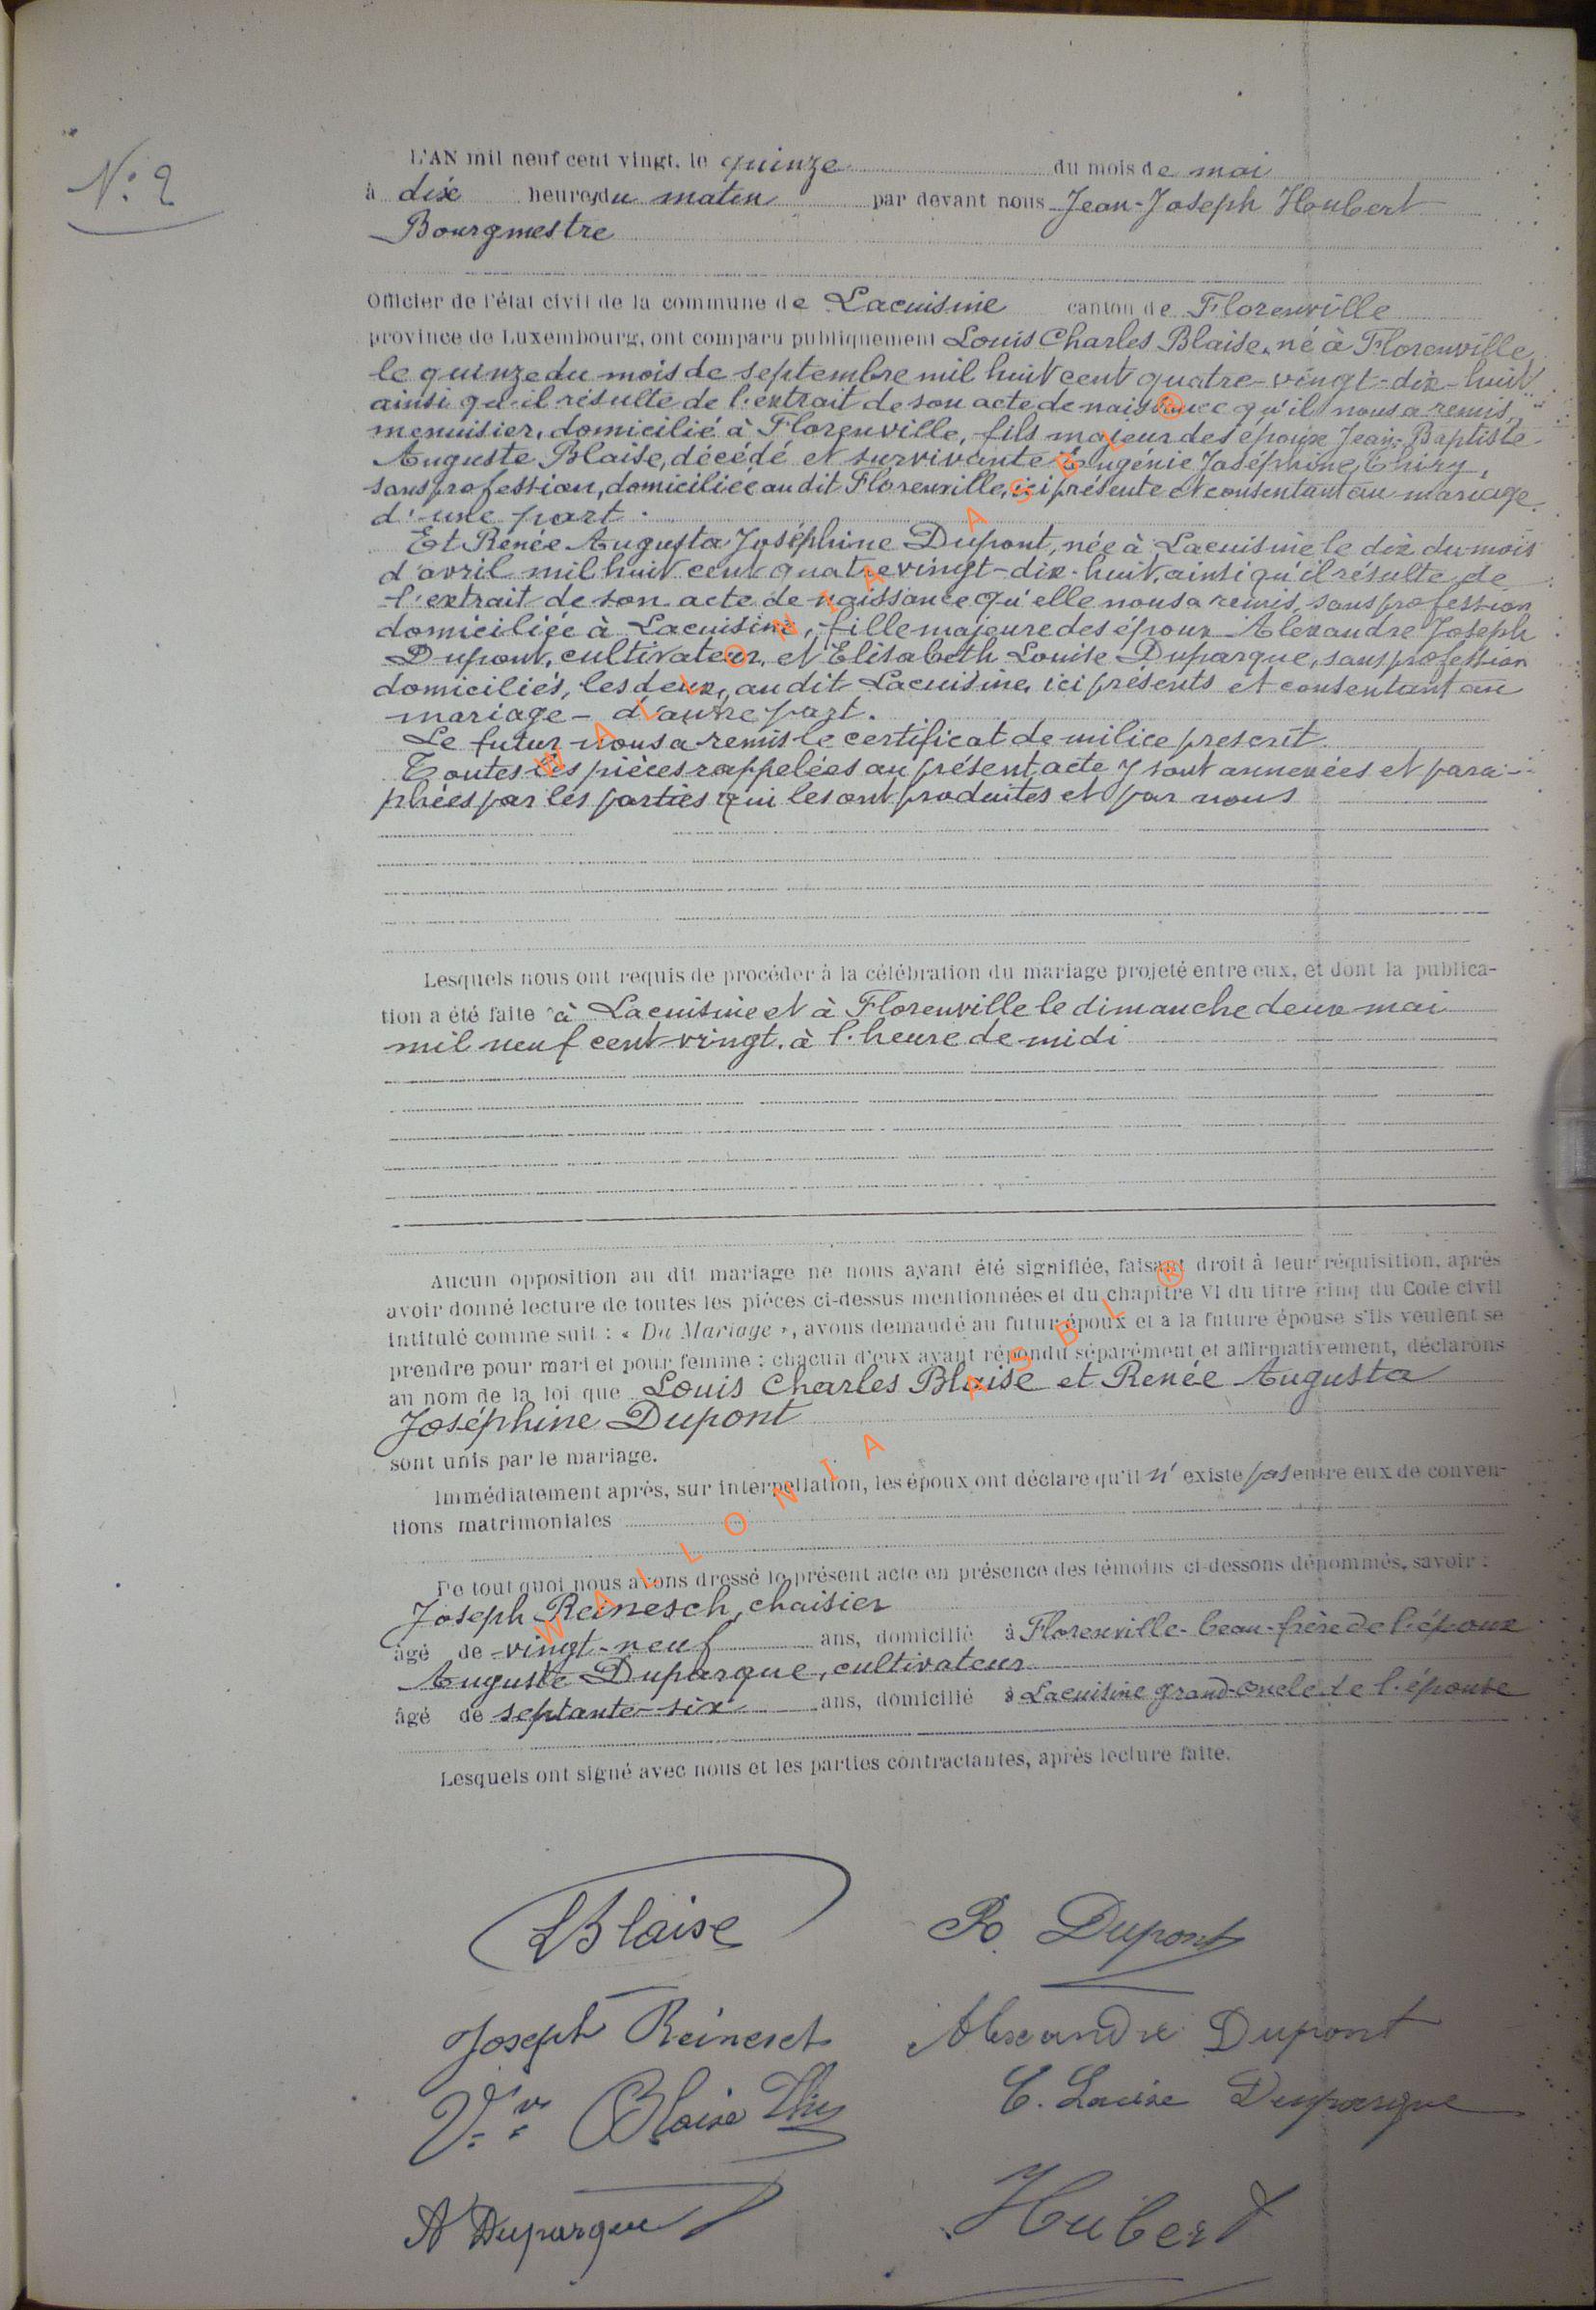 N° 2
L'AN mil neuf cent vingt, le quinze du mois de mai
à dix heures du matin par devant nous Jean-Joseph Hubert
Bourgmestre
Officier de l'état civil de la commune de Lacuisine canton de Florenville
province de Luxembourg, ont comparu publiquement Louis Charles Blaise, né à Florenville
le quinze du mois de septembre mil huit cent quatre-vingt-dix-huit
ainsi qu'il résulte de l'extrait de son acte de naissance qu'il nous a remis,
menuisier, domicilié à Florenville, fils majeur des époux Jean-Baptiste
Auguste Blaise, décédé et survivante Eugénie Joséphine Thiry,
sans profession, domiciliée au dit Florenville, ici présente et consentant au mariage
d'une part.
Et Renée Augusta Joséphine Dupont, née à Lacuisine le dix du mois
d'avril mil huit cent quatre vingt-dix-huit, ainsi qu'il résulte de
l'extrait de son acte de naissance qu'elle nous a remis, sans profession
domiciliée à Lacuisine, fille majeure des époux Alexandre Joseph
Dupont, cultivateur, et Elisabeth Louise Duparque, sans profession
domiciliés, les deux, au dit Lacuisine, ici présents et consentant au
mariage - d'autre part.
Le futur nous a remis le certificat de milice prescrit.
Toutes les pièces rappelées au présent acte y sont annexées et para-
phées par les parties qui les ont produites et par nous
Lesquels nous ont requis de procéder à la célébration du mariage projeté entre eux, et dont la publica-
tion a été faite à Lacuisine et à Florenville le dimanche deux mai
mil neuf cent vingt, à l'heure de midi
Aucun opposition au dit mariage ne nous ayant été signifiée, faisant droit à leur réquisition, après
avoir donné lecture de toutes les pièces ci-dessus mentionnées et du chapitre VI du titre cinq du Code civil
intitulé comme suit : « Du Mariage », avons demandé au futur époux et à la future épouse s'ils veulent se
prendre pour mari et pour femme : chacun d'eux ayant répondu séparément et affirmativement, déclarons
au nom de la loi que Louis Charles Blaise et Renée Augusta
Joséphine Dupont
sont unis par le mariage.
Immédiatement après, sur interpellation, les époux ont déclaré qu'il n'existe pas entre eux de conven-
tions matrimoniales
De tout quoi nous avons dressé le présent acte en présence des témoins ci-dessons dénommés, savoir :
Joseph Reinesch, chaisier
âgé de vingt-neuf ans, domicilié à Florenville - beau-frère de l'époux
Auguste Duparque, cultivateur
âgé de septante-six ans, domicilié à Lacuisine grand-oncle de l'épouse
Lesquels ont signé avec nous et les parties contractantes, après lecture faite.
LBlaise R. Dupont
Joseph Reinesch Alexandre Dupont
Vve Blaise Thiry E. Louise Duparque
A Duparque Hubert
WALLONIA ASBL ®
WALLONIA ASBL ®